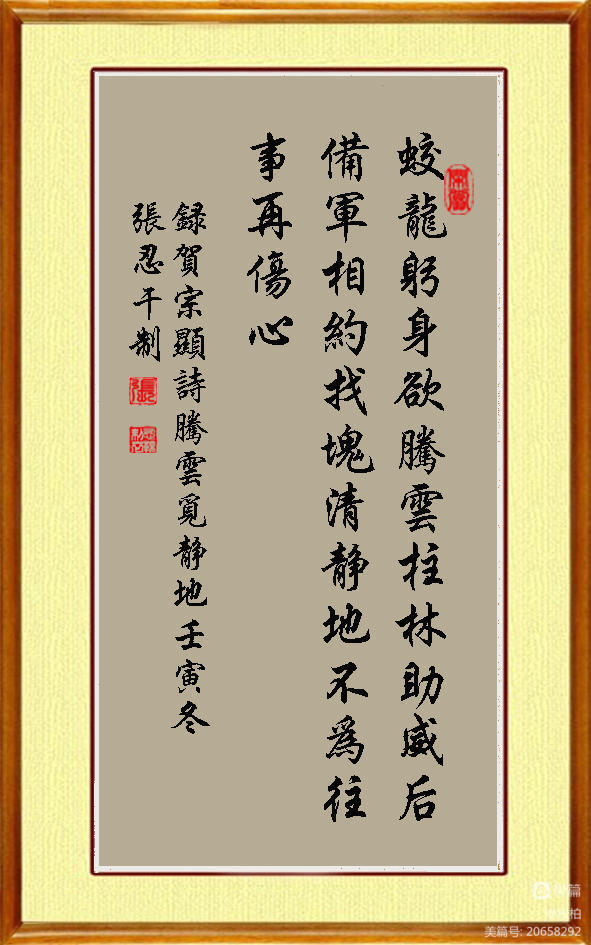 蛟龍躬身欲騰雲柱林助威后
備軍相約找塊清静地不為往
事再傷心
録賀宗顯詩騰雲覓静地壬寅冬
張忍干制
張
美篇号: 20658292